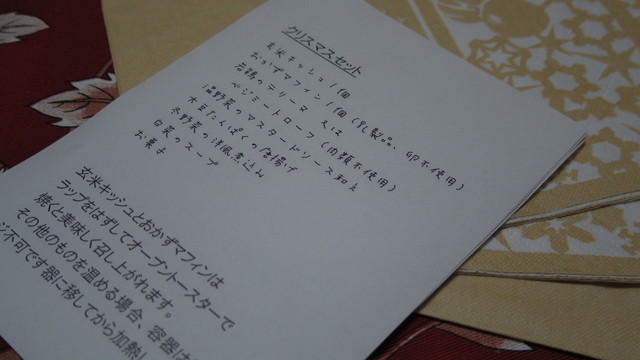 クリスマスセット
玄米キッシュ1個
おかずマフィン1個(乳製品、卵不使用)
若鶏のテリーヌ 又は
ベジミートローフ(肉類不使用)
温野菜のマスタードソース和え
大豆たんぱくの唐揚げ
冬野菜の洋風煮込み
白菜のスープ
お菓子
玄米キッシュとおかずマフィンは
ラップをはずしてオーブントースターで
焼くと美味しく召し上がれます。
その他のものを温める場合、容器は
ジ不可です器に移してから加熱し